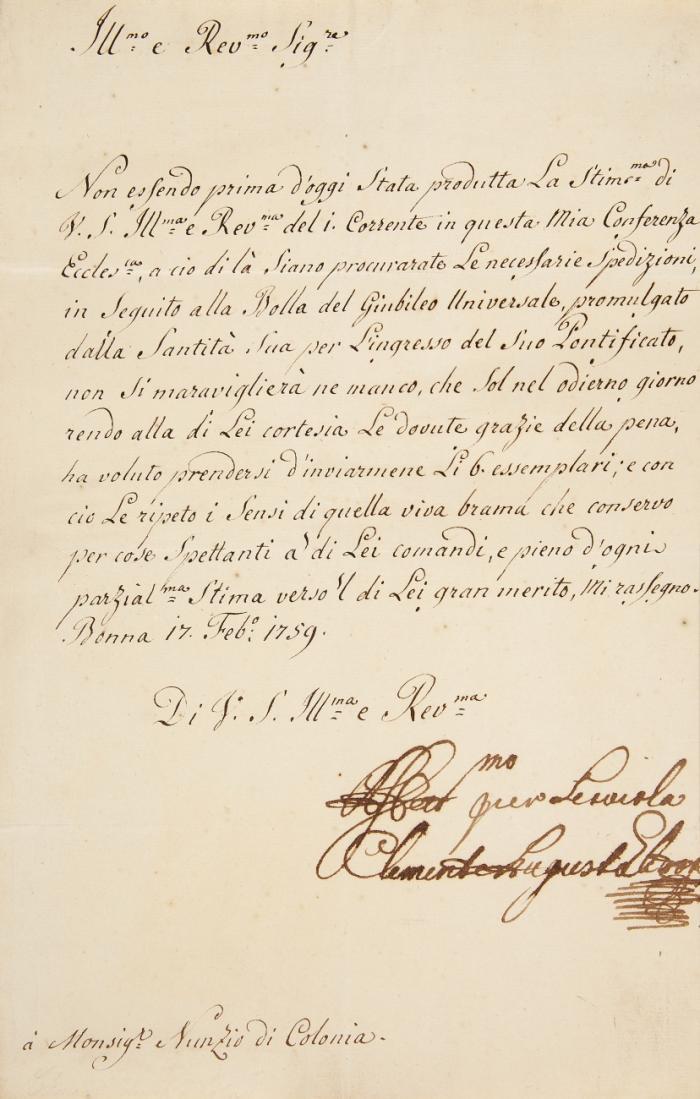 Ill.mo e Rev.mo Sig.re
Non essendo prima d'oggi Stata produtta La Stim.ma di
V. S. Ill.ma e Rev.ma del i. Corrente in questa Mia Conferenza
Eccles.ca, a cio di là Siano procurarate Le necessarie Spedizioni,
in Seguito alla Bolla del Giubileo Universale, promulgato
dalla Santità Sua per L'ingresso del Suo Pontificato,
non Si maraviglierà ne manco, che Sol nel odierno giorno
rendo alla di Lei cortesia Le dovute grazie della pena,
ha voluto prendersi d'inviarmene Li 6. essemplari; e con
cio Le ripeto i Sensi di quella viva brama che conservo
per cose Spettanti a' di Lei comandi, e pieno d'ogni
parzial.ma Stima verso 'l di Lei gran merito, Mi rassegno.
Bonna 17. Feb.o 1759.
Di V. S. Ill.ma e Rev.ma
Aff.mo per Servirla
Clemente Augusto
à Monsig.r Nunzio di Colonia.